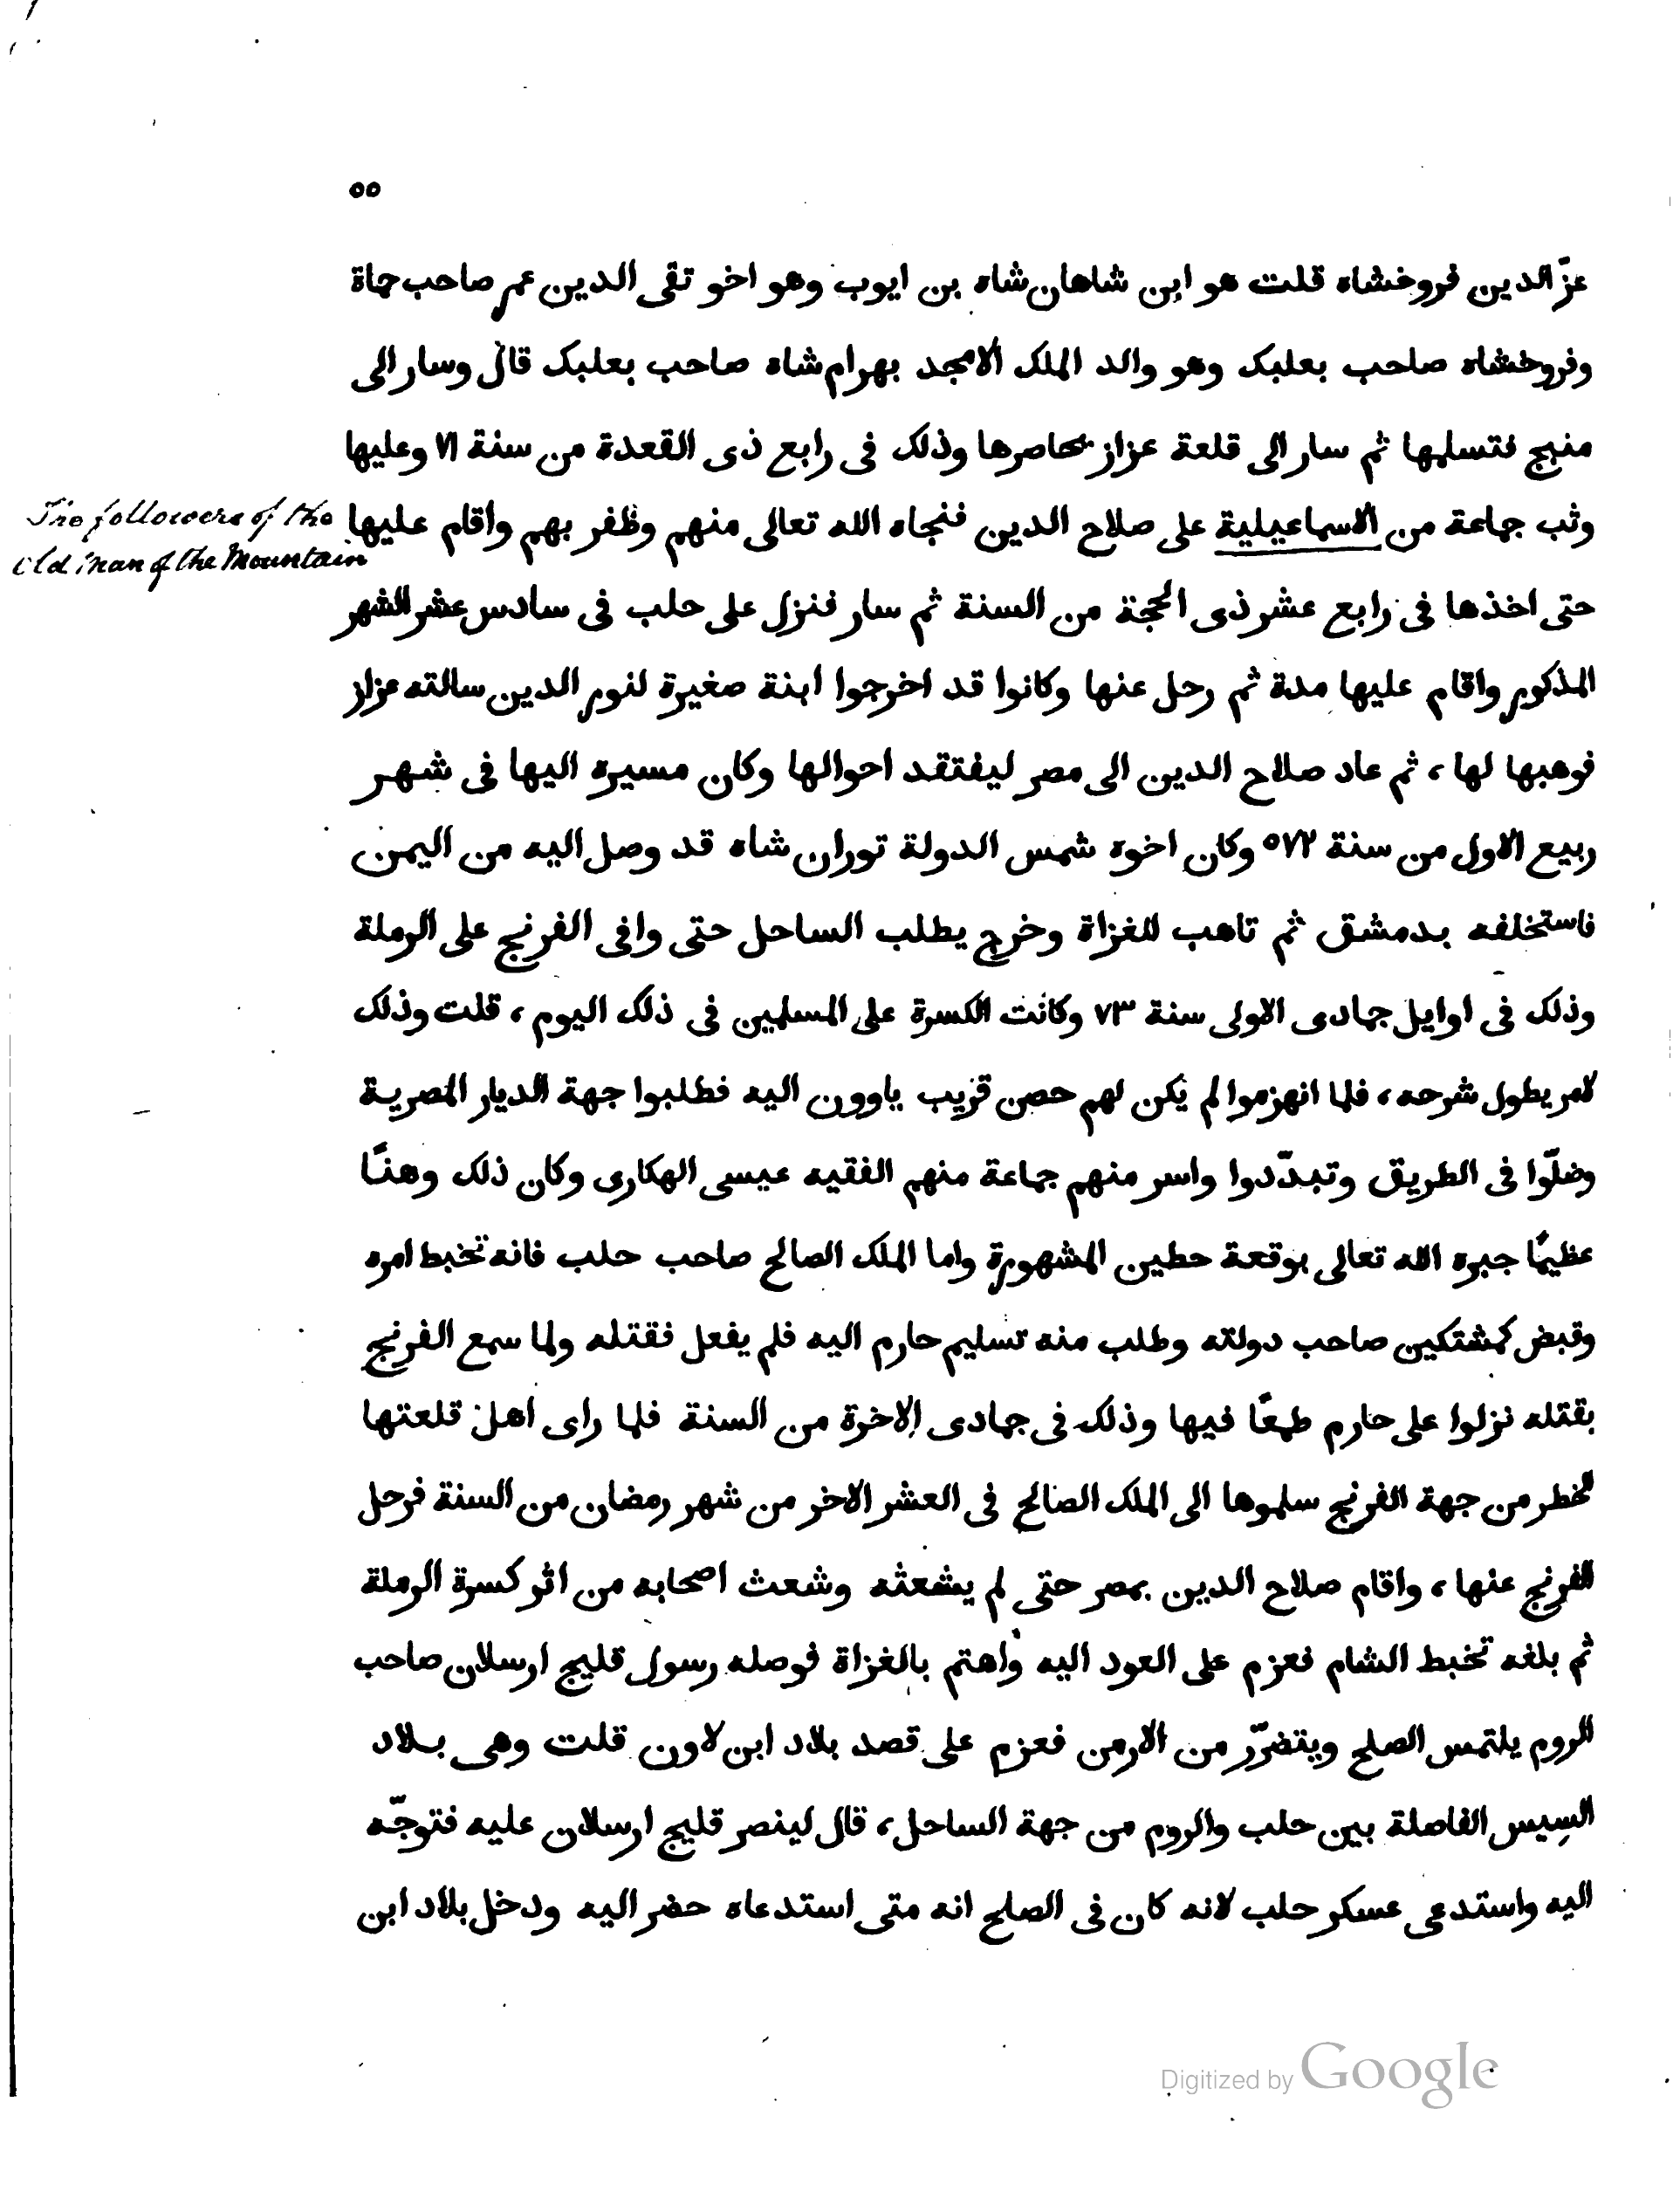 ٥٥
عزّ الدين فروخشاه قلت هو ابن شاهان شاه بن ايوب وهو اخو تقى الدين عمر صاحب حماة
وفروخشاه صاحب بعلبك وهو والد الملك الامجد بهرام شاه صاحب بعلبك قال وسار الى
منبج فتسلمها ثم سار الى قلعة عزاز يحاصرها وذلك فى رابع ذى القعدة من سنة ٧١ وعليها
وثب جماعة من الاسماعيلية على صلاح الدين فنجاه الله تعالى منهم وظفر بهم واقام عليها
The followers of the
Old Man of the Mountain
حتى اخذها فى رابع عشر ذى الحجة من السنة ثم سار فنزل على حلب فى سادس عشر الشهر
المذكور واقام عليها مدة ثم رحل عنها وكانوا قد اخرجوا ابنة صغيرة لنور الدين سالته عزاز
فوهبها لها، ثم عاد صلاح الدين الى مصر ليفتقد احوالها وكان مسيره اليها فى شهر
ربيع الاول من سنة ٥٧٢ وكان اخوه شمس الدولة توران شاه قد وصل اليه من اليمن
فاستخلفه بدمشق ثم تاهب للغزاة وخرج يطلب الساحل حتى وافى الفرنج على الرملة
وذلك فى اوايل جمادى الاولى سنة ٧٣ وكانت الكسرة على المسلمين فى ذلك اليوم، قلت وذلك
لامر يطول شرحه، فلما انهزموا لم يكن لهم حصن قريب ياوون اليه فطلبوا جهة الديار المصرية
وضلّوا فى الطريق وتبدّدوا واسر منهم جماعة منهم الفقيه عيسى الهكارى وكان ذلك وهنًا
عظيمًا جبره الله تعالى بوقعة حطين المشهورة واما الملك الصالح صاحب حلب فانه تخبط امره
وقبض كمشتكين صاحب دولته وطلب منه تسليم حارم اليه فلم يفعل فقتله ولما سمع الفرنج
بقتله نزلوا على حارم طمعًا فيها وذلك فى جمادى الاخرة من السنة فلما راى اهل قلعتها
الخطر من جهة الفرنج سلموها الى الملك الصالح فى العشر الاخر من شهر رمضان من السنة فرحل
الفرنج عنها، واقام صلاح الدين بمصر حتى لم يشعثه وشعث اصحابه من اثر كسرة الرملة
ثم بلغه تخبط الشام فعزم على العود اليه واهتم بالغزاة فوصله رسول قليج ارسلان صاحب
الروم يلتمس الصلح ويتضرّر من الارمن فعزم على قصد بلاد ابن لاون قلت وهى بلاد
السيس الفاصلة بين حلب والروم من جهة الساحل، قال لينصر قليج ارسلان عليه فتوجّه
اليه واستدعى عسكر حلب لانه كان فى الصلح انه متى استدعاه حضر اليه ودخل بلاد ابن
Digitized by Google